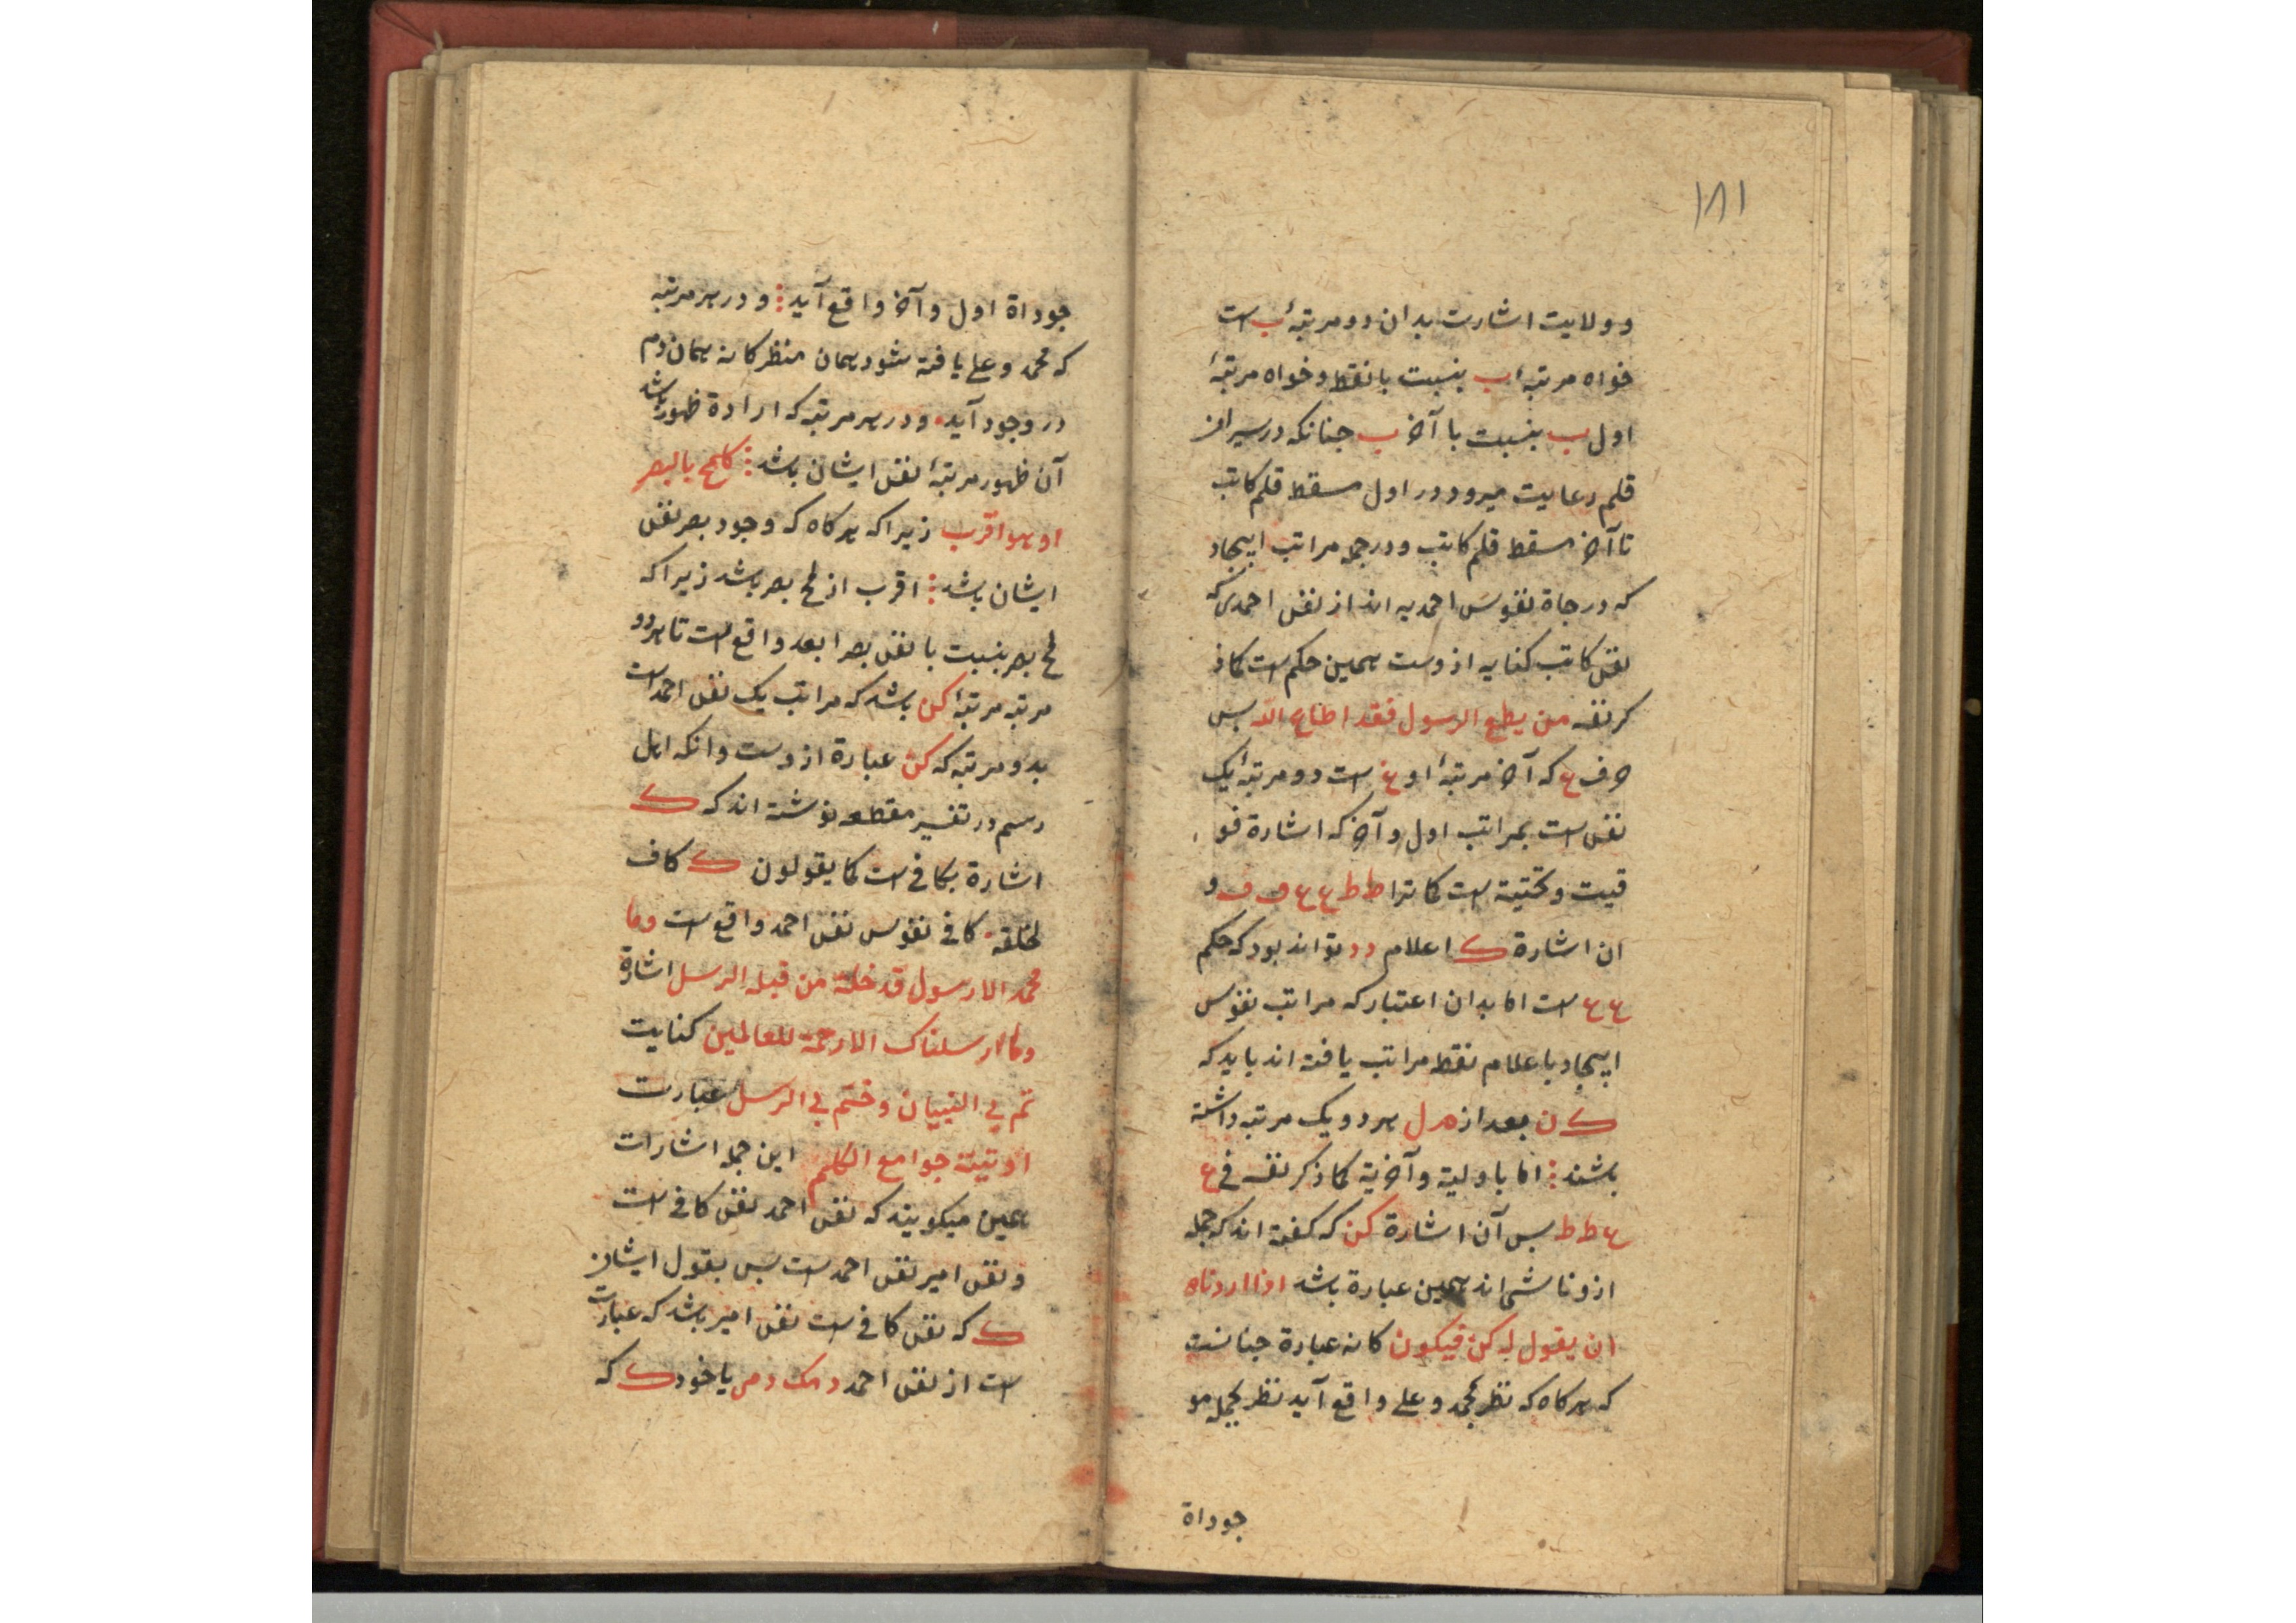 ١٨١
و ولایت اشارت بدان دو مرتبهٔ ب است
خواه مرتبهٔ ب بنسبت با نقط و خواه مرتبهٔ
اول ب بنسبت با آخر ب جنانکه در سیر از
قلم رعایت میرود در اول مسقط قلم کاتب
تا آخر مسقط قلم کاتب و در جمله مراتب ایبجاد
که درجاة نفوس احمدیه اند از نفس احمدی که
نفس کاتب کنایه ازوست همین حکم است کما ذ
کر نفسه من یطع الرسول فقد اطاع الله بس
حرف ع که آخر مرتبهٔ او غ است دو مرتبهٔ یک
نفس است بمراتب اول و آخر که اشارة فو
قیت و تحتیة است کما ترا ط ط ع ع ف ف و
ان اشارة ک اعلام د د تواند بود که حکم
ع ع است اما بدان اعتبار که مراتب نفوس
ایبجاد باعلام نقط مراتب یافته اند باید که
ک ن بعد از م ل هر دو یک مرتبه داشته
باشند اما باولیة و آخریة کما ذکر نفسه فی ع
ع ط ط بس آن اشارة کن که کفته اند که جمله
ازو ناشی اند همین عبارة باشد اذا اردناه
ان یقول له کن فیکون کانه عبارة جنانست
که هرکاه که نظر بمحمد و علی واقع آید نظر بجمله مو
جوداة
جوداة اول و آخر واقع آید و در هر مرتبه
که محمد و علی یافته شود همان منظر کانه همان دم
در وجود آید و در هر مرتبه که ارادة ظهور باشد
آن ظهور مرتبهٔ نفس ایشان باشد کلمح بالبصر
او هو اقرب زیرا که هرکاه که وجود بصر نفس
ایشان باشد اقرب از لمح بصر باشد زیرا که
لمح بصر بنسبت با نفس بصر ابعد واقع است تا هر دو
مرتبه مرتبهٔ کن باشد که مراتب یک نفس احمد است
بدو مرتبه که کن عبارة ازوست و انکه اهل
رسم در تفسیر مقطعه نوشته اند که ک
اشارة بکافی است کما یقولون ک کاف
لخلقه کافی نفوس نفس احمد واقع است وما
محمد الا رسول قد خلت من قبله الرسل اشارة
وما ارسلناک الا رحمة للعالمین کنایت
تم بی النبییان و ختم بی الرسل عبارت
اوتیتة جوامع الکلم این جمله اشارات
همین میکویند که نفس احمد نفس کافی است
و نفس امیر نفس احمد است بس بقول ایشان
ک که نفس کافی است نفس امیر باشد که عبارت
است از نفس احمد یا خود ک که